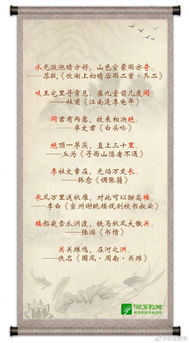 水光潋滟晴方好，山色空蒙雨亦奇。
——苏轼《饮湖上初晴后雨二首·其二》
岐王宅里寻常见，崔九堂前几度闻
——杜甫《江南逢李龟年》
闻君有两意，故来相决绝。
——卓文君《白头吟》
绝顶一茅茨，直上三十里。
——丘为《寻西山隐者不遇》
李杜文章在，光焰万丈长。
——韩愈《调张籍》
长风万里送秋雁，对此可以酣高楼。
——李白《宣州谢朓楼饯别校书叔云》
楼船夜雪瓜洲渡，铁马秋风大散关。
——陆游《书愤》
关关雎鸠，在河之洲。
——佚名《国风·周南·关雎》